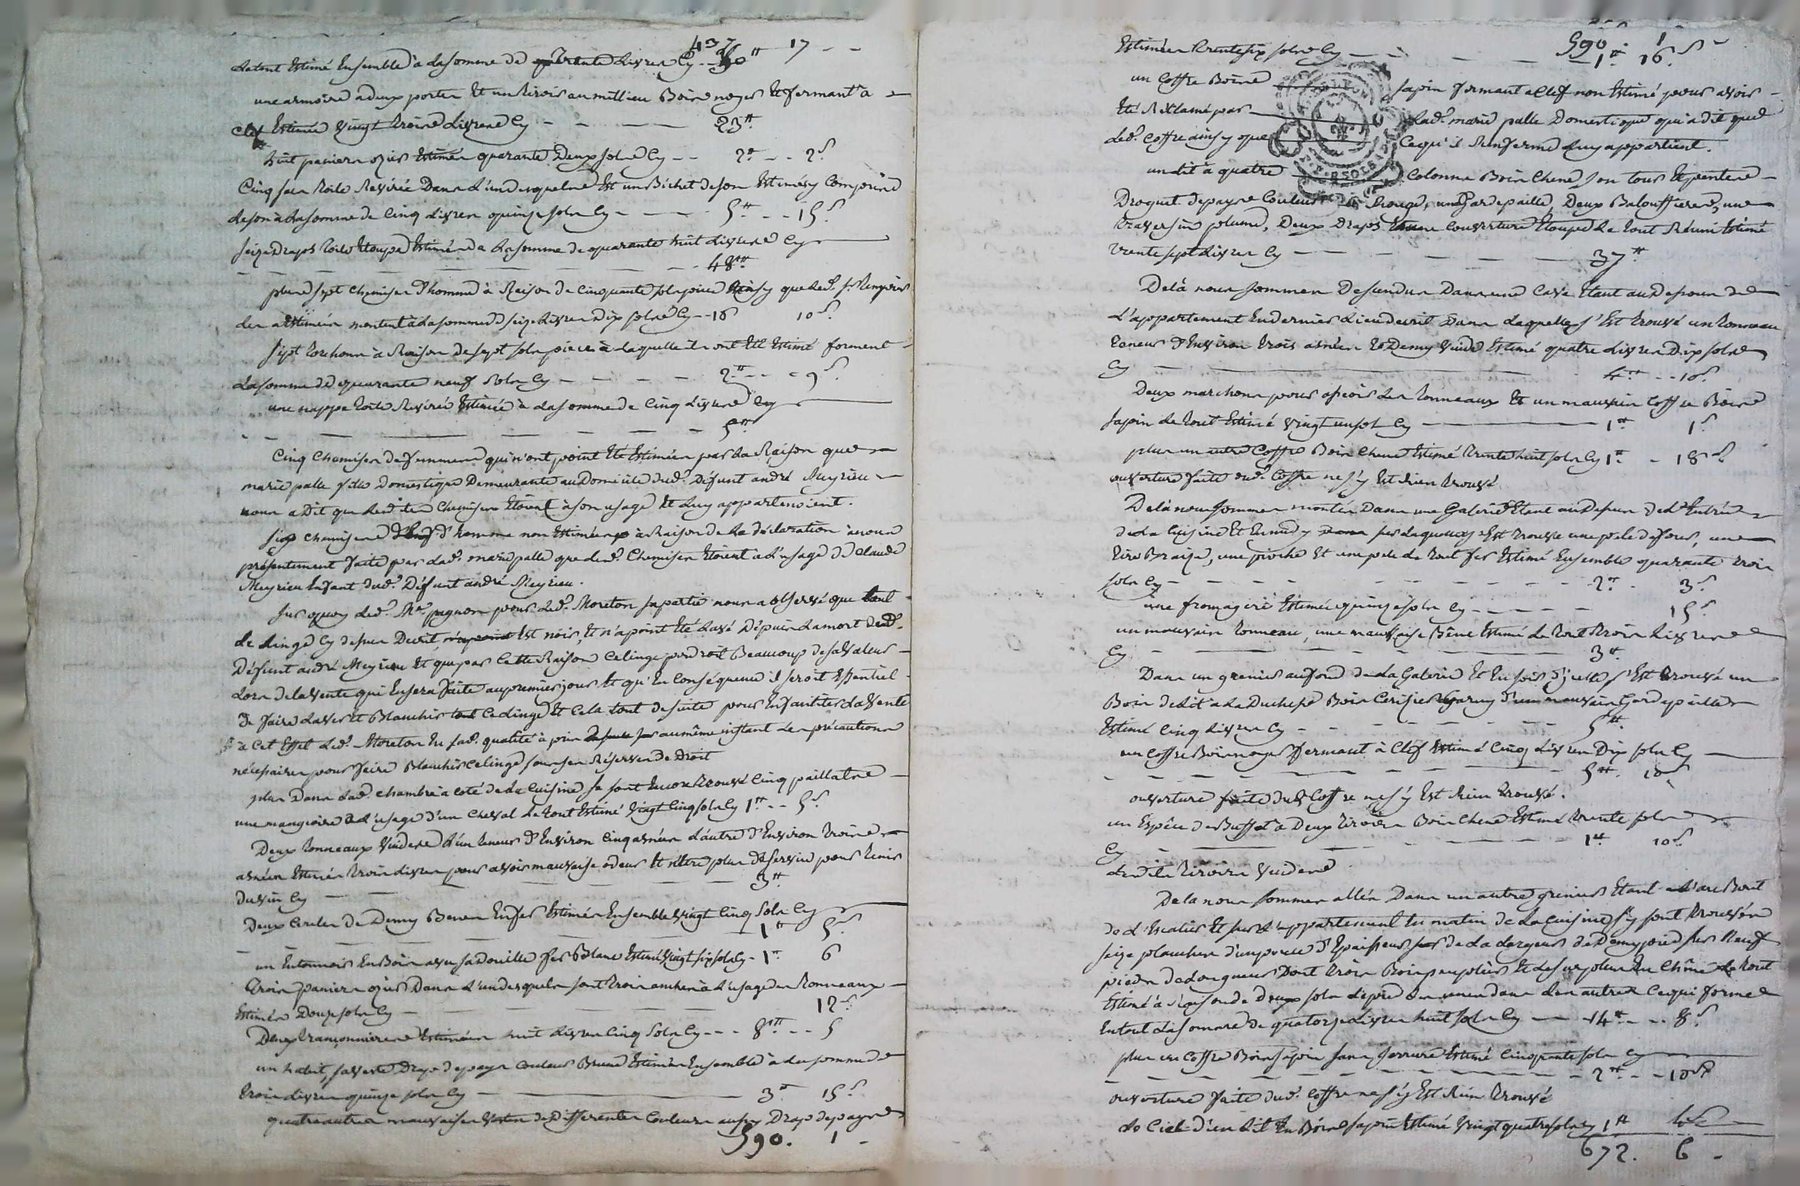 437 17
Le tout Estimé Ensemble à la somme de trente Livres Cy 30
une armoire a deux portes Et un tiroir au millieu Bois noyer Et fermant à
clef Estimée Vingt trois Livres Cy 23
huit paniers ozier Estimés quarante Deux sols Cy 2 2
Cinq sacs toile Dans L'un desquels Est un Bichet de son Estimés y Comprins
Le son à La somme de Cinq Livres quinze sols Cy 5 15
Seize Draps toile Etoupe Estimés a La somme de quarante huit Livres Cy
48
plus sept chemises d'homme à Raison de Cinquante sols piece
montent à La somme de seize Livres Dix sols Cy 16 10
sept torchons à Raison de sept sols piece à laquelle ils ont Eté Estimé forment
La somme de quarante neuf sols Cy 2 9
une nappe toile Estimée à La somme de Cinq Livres Cy
5
Cinq chemises de femme qui n'ont point Eté Estimées par La Raison que
marie palle fille Domestique Demeurante au Domicile dud. Défunt andré Meyrieu
nous a Dit que Lesdites Chemises Etoient à son usage Et Luy appartenoient.
Six chemises d'homme non Estimées à Raison de La déclaration à nous
présentement faite par lad. marie palle que Led. Chemises Etoient à L'usage de Claude
Meyrieu Enfant dud. Défunt andré Meyrieu.
Sur quoy Led. Me. pignon pour Led. Moreton sa partie nous a observé que tout
Le Linge Cy dessus Decrit, Est noir, Et n'a point Eté Lavé Depuis La mort dud.
Défunt andré Meyrieu Et que par Cette Raison Ce Linge perdroit Beaucoup de sa valeur
Lors de La vente qui En sera faite au premier jour Et qu'En Conséquence il seroit Essentiel
De faire Laver Et Blanchir Ce Linge Et Cela tout de suite pour En faciliter La Vente
à Cet Effet Led. Moreton En sad. qualité à pris au même instant Les précautions
nécessaires pour faire Blanchir Ce Linge sous ses Réserves de Droit
plus Dans Lad. chambre à coté de La Cuisine se sont Encore trouvé Cinq paillasse
une mangeoire à L'usage d'un Cheval Le tout Estimé Vingt Cinq sols Cy 1 5
Deux tonneaux Vuides L'un teneur d'Environ Cinq asnées L'autre d'Environ trois
asnées Estimés trois Livres pour avoir mauvaise odeur Et n'être plus De service pour tenir
du vin Cy 3
Deux Cercles de Demy Benne En fer Estimés Ensemble Vingt Cinq sols Cy
1 5
un Entonnoir En Bois avec sa Douille fer Blanc Estimé Vingt six sols Cy 1 6
trois paniers ozier Dans L'un desquels sont trois anches à L'usage des tonneaux
Estimés Douze sols Cy 12
Deux Estimées huit Livres Cinq sols Cy 8 5
un habit, sa veste Drap de pays Couleur Brune Estimés Ensemble à La somme de
trois Livres quinze sols Cy 3 15
quatre autres mauvaises Vestes de Differentes Couleurs aussy Drap de pays
590. 1
590. 1
Estimées trente six sols Cy 1 16
un Coffre Bois Sapin fermant a Clef non Estimé pour avoir
Eté Réclamé par Lad. marie palle Domestique qui a dit que
Led. Coffre ainsy que Ce qu'il Renferme Luy appartient.
un Lit à quatre Colonnes Bois Chene son tour Et pente
Droguet de pays Couleur Rouge, une Gardepaille, Deux Balouffieres, une
traversin plume, Deux Draps Couverture Etoupe Le tout Réuni Estimé
trente sept Livres Cy 37
De là nous sommes Descendus Dans une Cave Etant au Dessous de
L'appartement En dernier Lieu decrit Dans Laquelle s'Est trouvé un tonneau
teneur d'Environ trois asnées Et Demy Vuide Estimé quatre Livres Dix sols
Cy 4 10
Deux marchons pour asseoir Les tonneaux Et un mauvais Coffre Bois
Sapin Le tout Estimé Vingt un sol Cy 1 1
plus un autre Coffre Bois Chene Estimé trente huit sols Cy 1 18
ouverture faite dud. Coffre ne s'y Est Rien trouvé
De là nous sommes montés Dans une Galerie Etant au Dessus de L'Entrée
de La Cuisine s'Est trouvé une pele de four, une
tire Braize, une pioche Et une pele Le tout fer Estimé Ensemble quarante trois
sols Cy 2 3
une fromagere Estimée quinze sols Cy 15
un mauvais tonneau, une mauvaise Bêne Estimé Le tout trois Livres
Cy 3
Dans un grenier au fond de La Galerie s'Est trouvé un
Bois de Lit a La Duchesse Bois Cerisier Garny d'une mauvaise Gardepaille
Estimé Cinq Livres Cy 5
un Coffre Bois noyer fermant à Clef Estimé Cinq Livres Dix sols Cy
5 10
ouverture faite dud. Coffre ne s'y Est Rien trouvé.
un Espece de Buffet à Deux tiroirs Bois Chene Estimé trente sols
Cy 1 10
Lesdits tiroirs Vuides
De La nous sommes allés Dans un autre grenier Etant
de L'Escalier Et sur L'appartement au matin de La Cuisine s'y sont trouvés
seize planches d'un pouce d'Epaisseur sur de La Largeur de Demy pied sur Neuf
pieds de Longueur Dont trois Bois peuplier Et Le surplus En Chêne Le tout
Estimé à Raison de Deux sols Le pied Ce qui forme
En tout La somme de quatorze Livres huit sols Cy 14 8
plus un Coffre Bois Sapin sans serrure Estimé Cinquante sols Cy
2 10
ouverture faite dud. Coffre ne s'y Est Rien trouvé
Le Ciel d'un Lit En Bois Sapin Estimé Vingt quatre sols Cy 1 4
672. 6